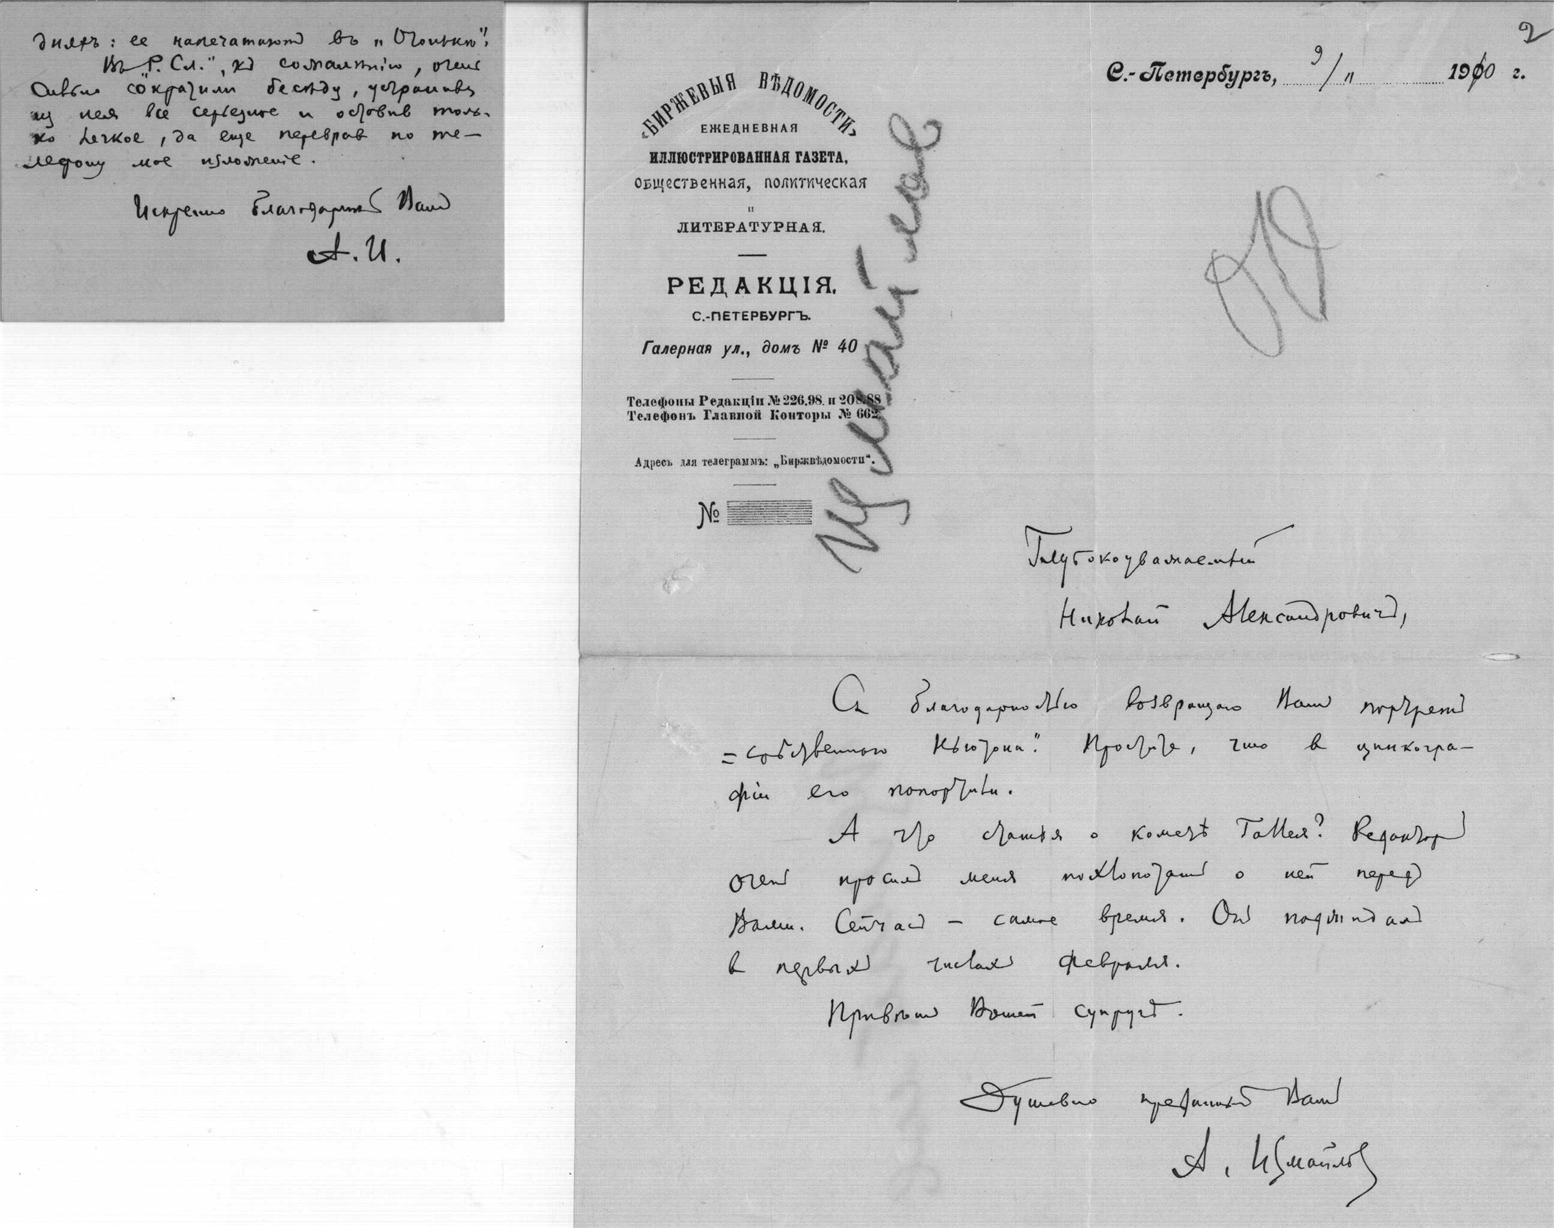 дняхъ: ее напечатают въ „Огоньке".
Въ „Р. Сл.", къ сожалѣнію, очень
сильно сократили бесѣду, устранивъ
из нея все серьезное и оставив толь-
ко легкое, да еще переврав по те-
лефону мое изложеніе.
Искренно благодарный Вам
А. И.
2
С.-Петербургъ, 9/II 1910 г.
„БИРЖЕВЫЯ ВѢДОМОСТИ"
ЕЖЕДНЕВНАЯ
ИЛЛЮСТРИРОВАННАЯ ГАЗЕТА,
ОБЩЕСТВЕННАЯ, ПОЛИТИЧЕСКАЯ
и
ЛИТЕРАТУРНАЯ.
РЕДАКЦІЯ.
С.-ПЕТЕРБУРГЪ.
Галерная ул., домъ № 40
Телефоны Редакціи № 226,98. и 208,88
Телефонъ Главной Конторы № 662.
Адресъ для телеграммъ: „Биржвѣдомости".
№
Измайлов
Глубокоуважаемый
Николай Александровичъ,
Съ благодарностью возвращаю Вам портрет
„собственного Ньютона". Простите, что в цинкогра-
фіи его попортили.
А что статья о кометѣ Галлея? Редактор
очень просил меня похлопотать о ней перед
Вами. Сейчас – самое время. Он поджидал
в первых числах февраля.
Привѣт Вашей супругѣ.
Душевно преданный Вам
А. Измайлов